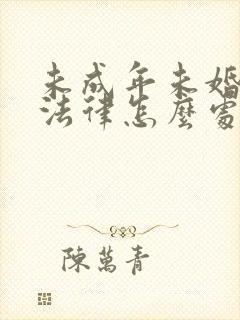 未成年未婚
法律怎麼處
陳萬青